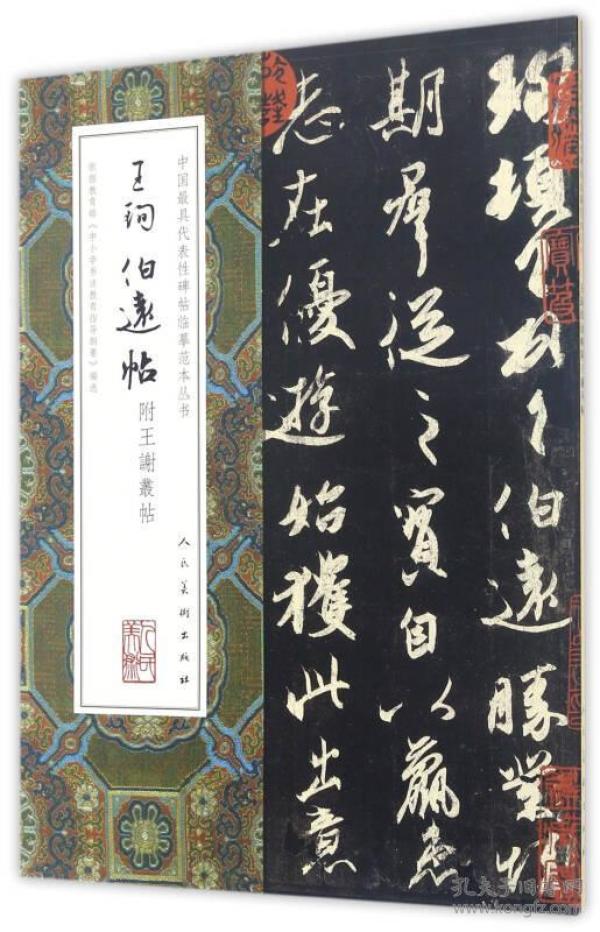 珣頓首頓首伯遠勝業情
期群從之寶自以羸患
志在優遊始獲此出意
中国最具代表性碑帖临摹范本丛书
王珣 伯遠帖
附王謝叢帖
依据教育部《中小学书法教育指导纲要》编选
人民美術出版社
人民美術
孔夫子旧书网
www.kongfz.com